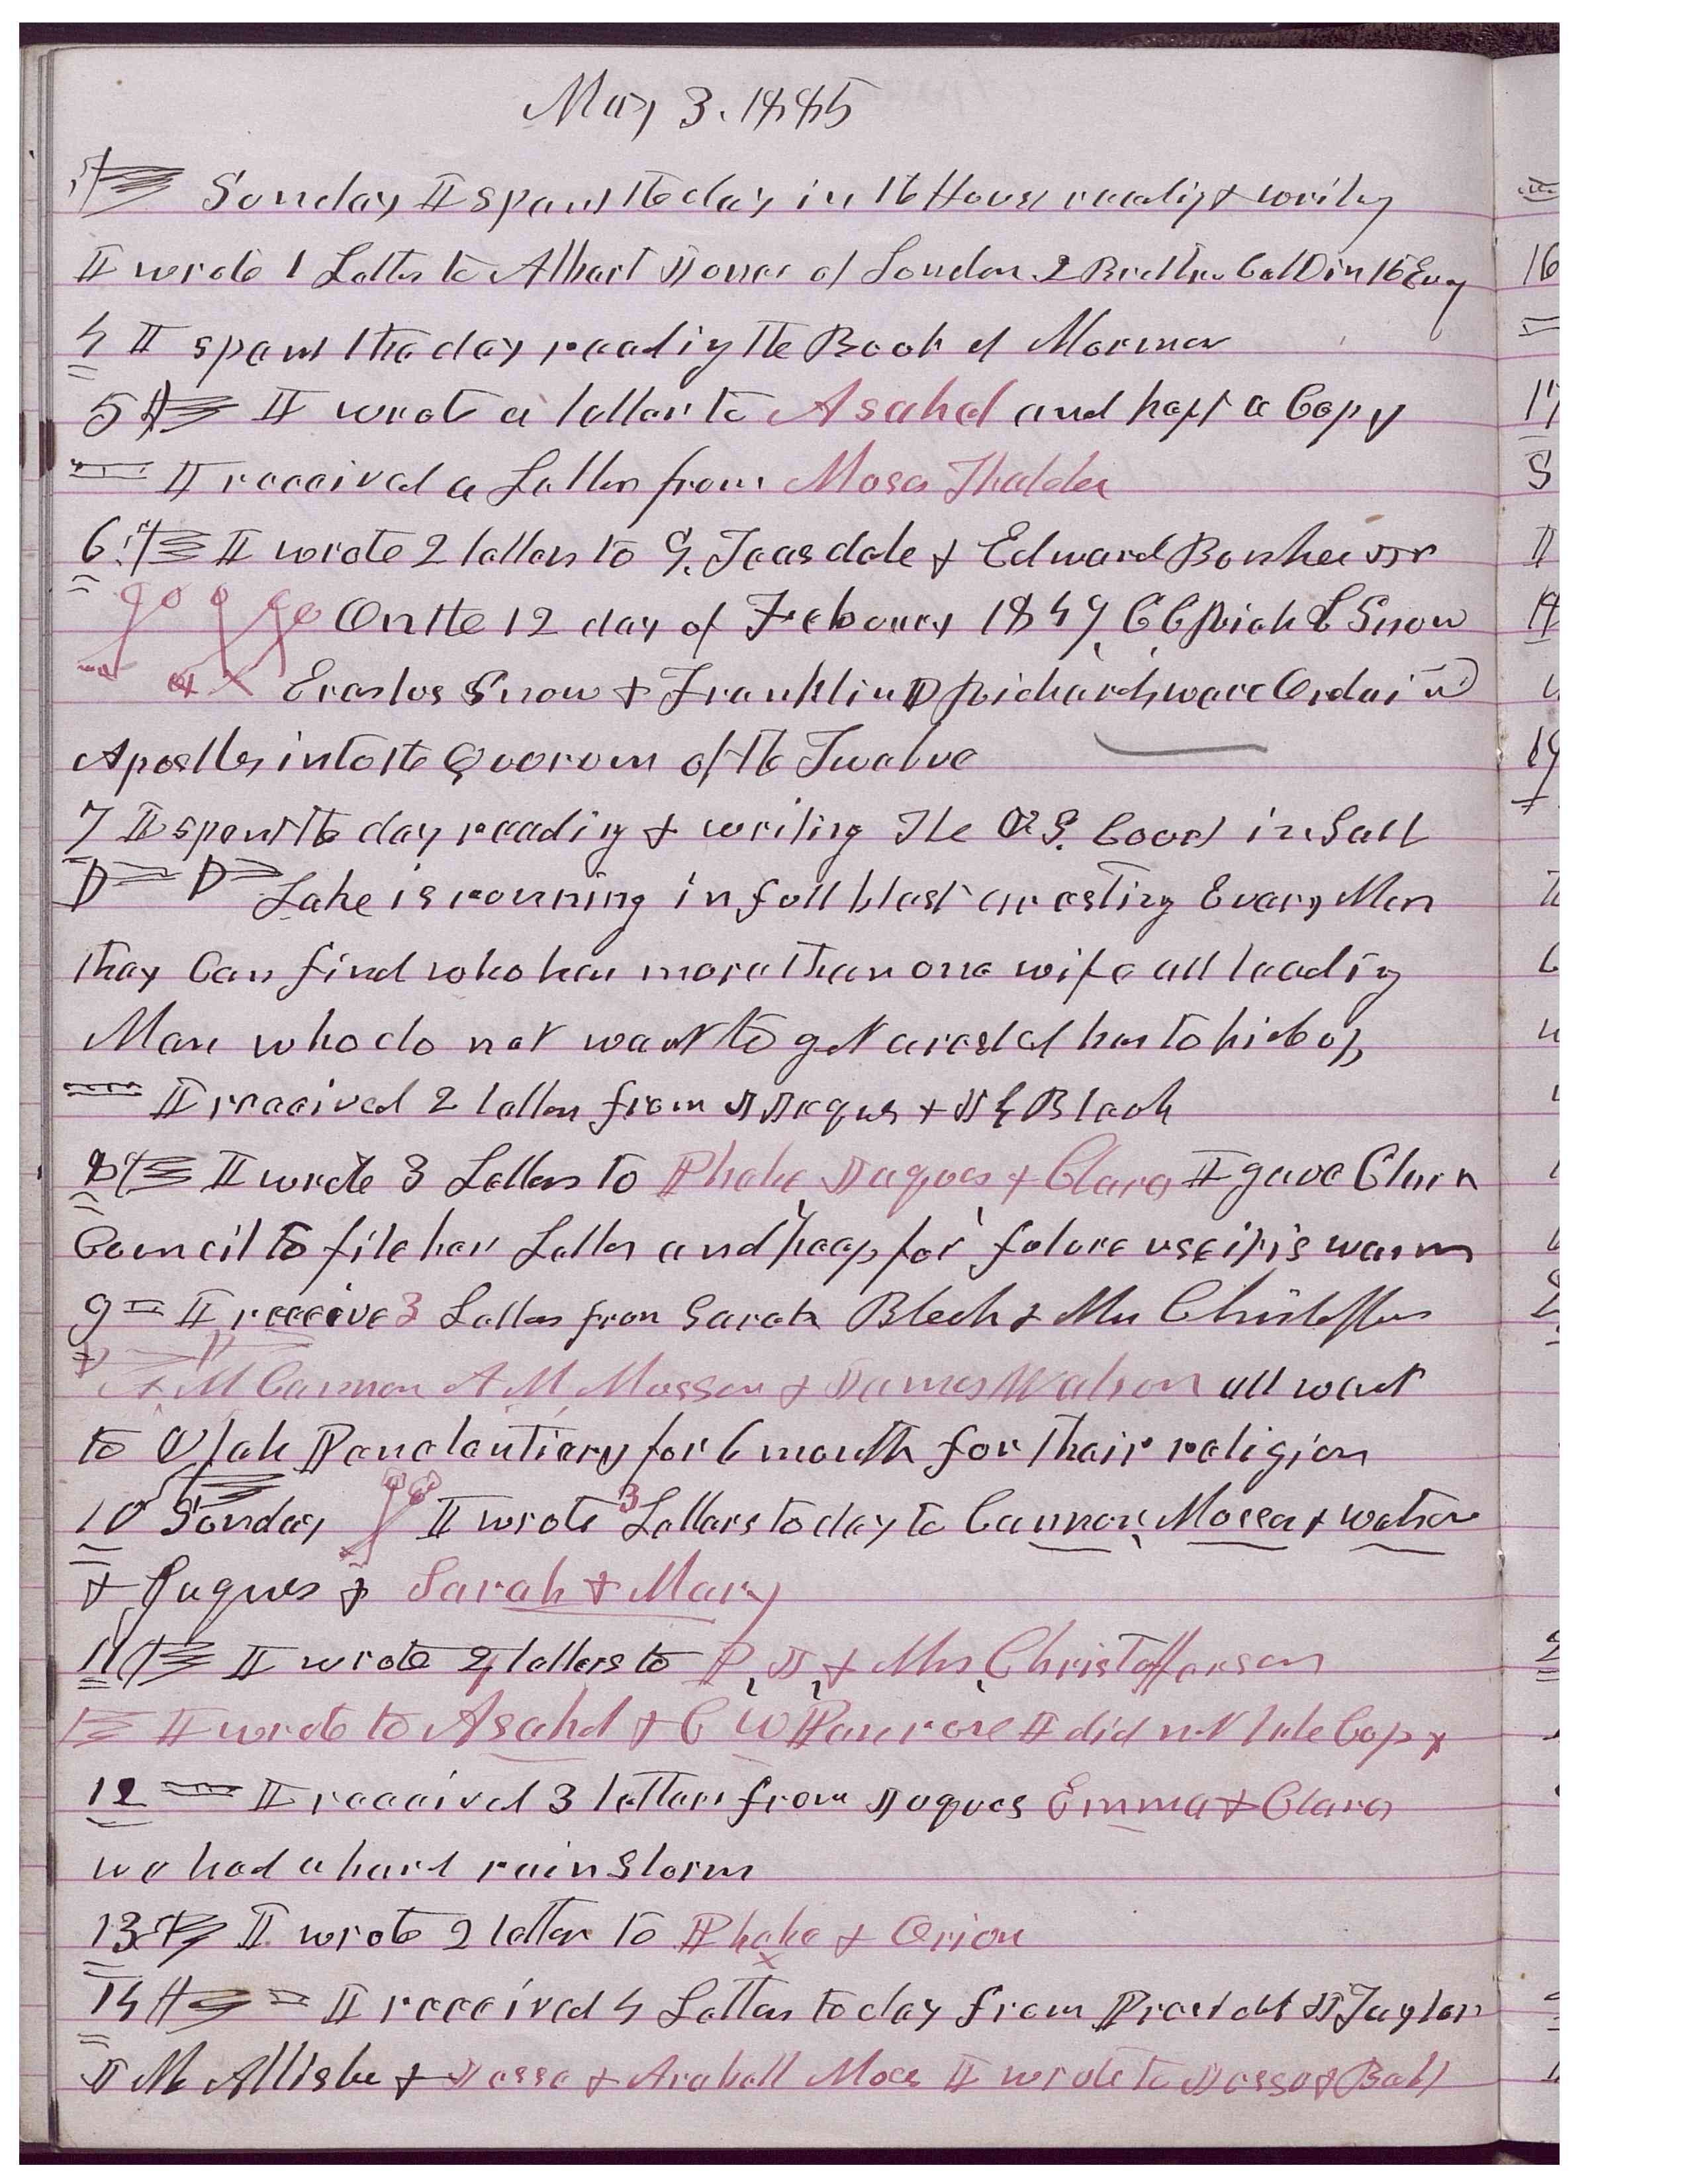 May 3. 1885
Sunday I spent the day in the House reading & writing
I wrote 1 Letter to Albert Jones of London 2 Brethren Calld in the Eveng
4 I spent the day reading the Book of Mormon
5 I wrote a letter to Asahel and kept a Copy
I received a Letter from Moses Thatcher
6 I wrote 2 letters to G. Teasdale & Edward Bunker jr
On the 12 day of Februery 1849 C C Rich L Snow
Erastus Snow & Franklin D Richards ware Ordaind
Apostles into the Quorum of the Twelve
7 I spent the day reading & writing The U.S. Court in Salt
Lake is running in full blast arresting Every Man
they Can find who has more than one wife all leading
Men who do not want to get arrested has to hide up
I received 2 letters from Jaques & Black
8 I wrote 3 Letters to Phebe, Jaques & Clara I gave Clara
Council to file her Letter and keep for future use it is warm
9 I receive 3 Letters from Sarah Bleak & Mrs Christoffers
A. M Cannon A. M. Musser & James Watson all went
to Utah Panetentiary for 6 month for their religion
10 Sunday I wrote 3 Letters to day to Cannon, Mosser & Watson
& Jaques & Sarah & Mary
11 I wrote 4 letters to P, J, & Mrs, Christofferson
I wrote to Asahel & C W Penrose I did not take Copy
12 I received 3 letters from Jaques Emma & Clara
we had a hard rain Storm
13 I wrote 2 letter to Phebe & Orion
14 I received 4 Letters to day from President J Taylor
J McAllister & Jesse & Arabell Moses I wrote to Jesse & Bell